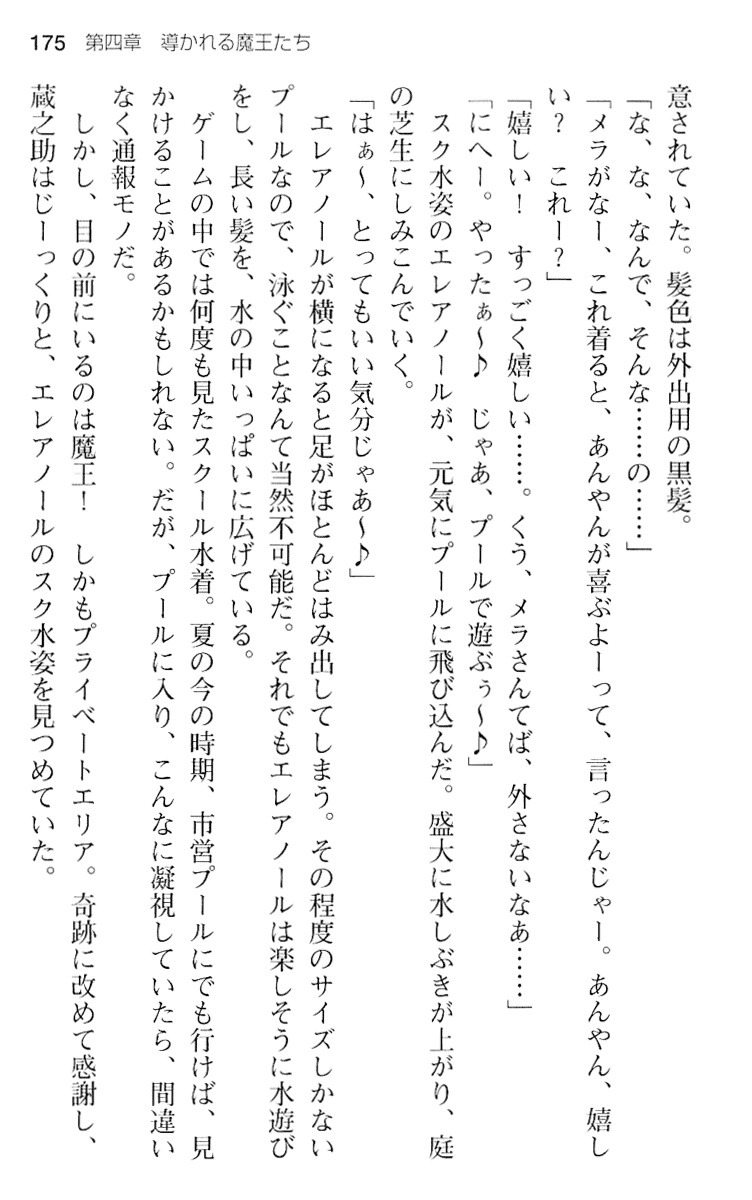 175 第四章 導かれる魔王たち
意されていた。髪色は外出用の黒髪。
「な、な、なんで、そんな……の……」
「メラがなー、これ着ると、あんやんが喜ぶよーって、言ったんじゃー。あんやん、嬉し
い？　これー？」
「嬉しい！　すっごく嬉しい……。くう、メラさんてば、外さないなあ……」
「にへー。やったぁ～♪　じゃあ、プールで遊ぶぅ～♪」
　スク水姿のエレアノールが、元気にプールに飛び込んだ。盛大に水しぶきが上がり、庭
の芝生にしみこんでいく。
「はぁ～、とってもいい気分じゃあ～♪」
　エレアノールが横になると足がほとんどはみ出してしまう。その程度のサイズしかない
プールなので、泳ぐことなんて当然不可能だ。それでもエレアノールは楽しそうに水遊び
をし、長い髪を、水の中いっぱいに広げている。
　ゲームの中では何度も見たスクール水着。夏の今の時期、市営プールにでも行けば、見
かけることがあるかもしれない。だが、プールに入り、こんなに凝視していたら、間違い
なく通報モノだ。
　しかし、目の前にいるのは魔王！　しかもプライベートエリア。奇跡に改めて感謝し、
蔵之助はじーっくりと、エレアノールのスク水姿を見つめていた。